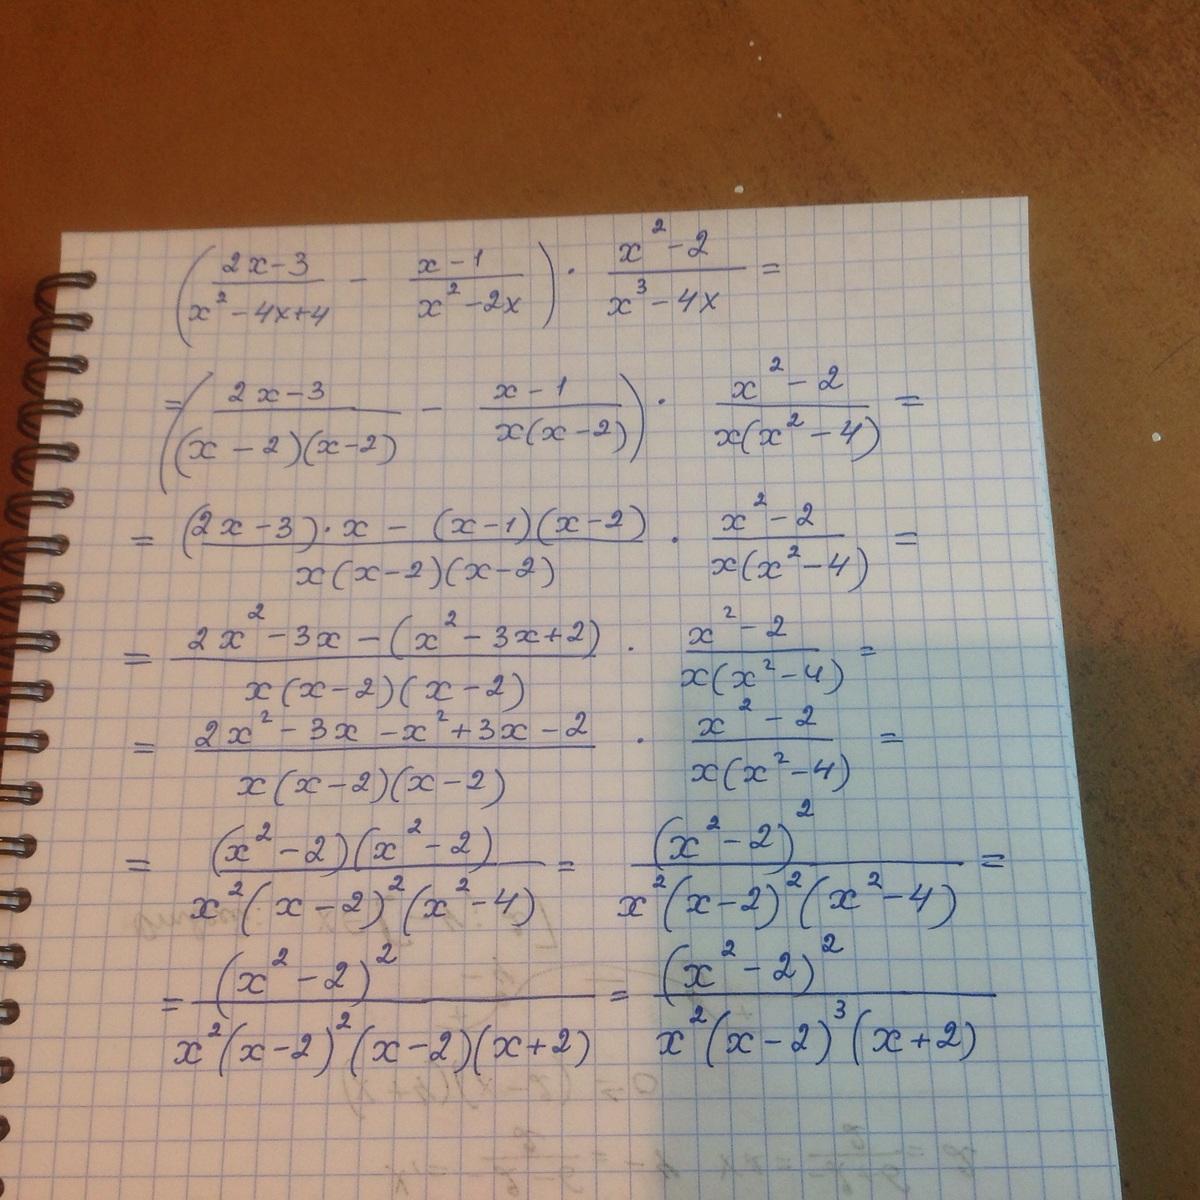 (2x-3/x²-4x+4 - x-1/x²-2x) · x²-2/x³-4x =
= (2x-3/(x-2)(x-2) - x-1/x(x-2)) · x²-2/x(x²-4) =
= (2x-3)·x - (x-1)(x-2)/x(x-2)(x-2) · x²-2/x(x²-4) =
= 2x²-3x-(x²-3x+2)/x(x-2)(x-2) · x²-2/x(x²-4) =
= 2x²-3x-x²+3x-2/x(x-2)(x-2) · x²-2/x(x²-4) =
= (x²-2)(x²-2)/x²(x-2)²(x²-4) = (x²-2)²/x²(x-2)²(x²-4) =
= (x²-2)²/x²(x-2)²(x-2)(x+2) = (x²-2)²/x²(x-2)³(x+2)